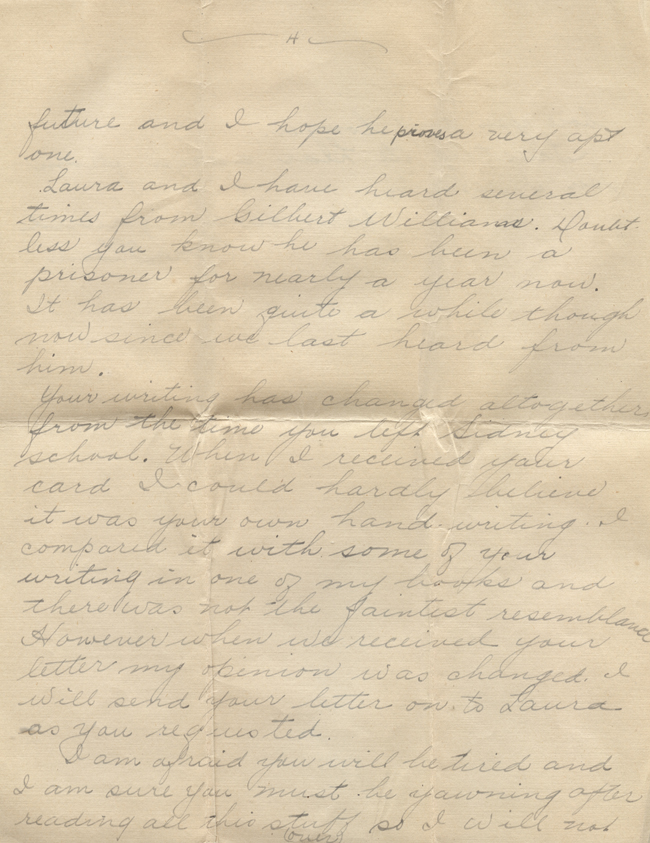 4
future and I hope he proves a very apt
one.
Laura and I have heard several
times from Gilbert Williams. Doubt
less you know he has been a
prisoner for nearly a year now.
It has been quite a while though
now since we last heard from
him.
Your writing has changed altogether
from the time you left Sidney
school. When I received your
card I could hardly believe
it was your own hand writing. I
compared it with some of your
writing in one of my books and
there was not the faintest resemblance
However when we received your
letter my opinion was changed. I
will send your letter on to Laura
as you requested.
I am afraid you will be tired and
I am sure you must be yawning after
reading all this stuff so I will not
(over)